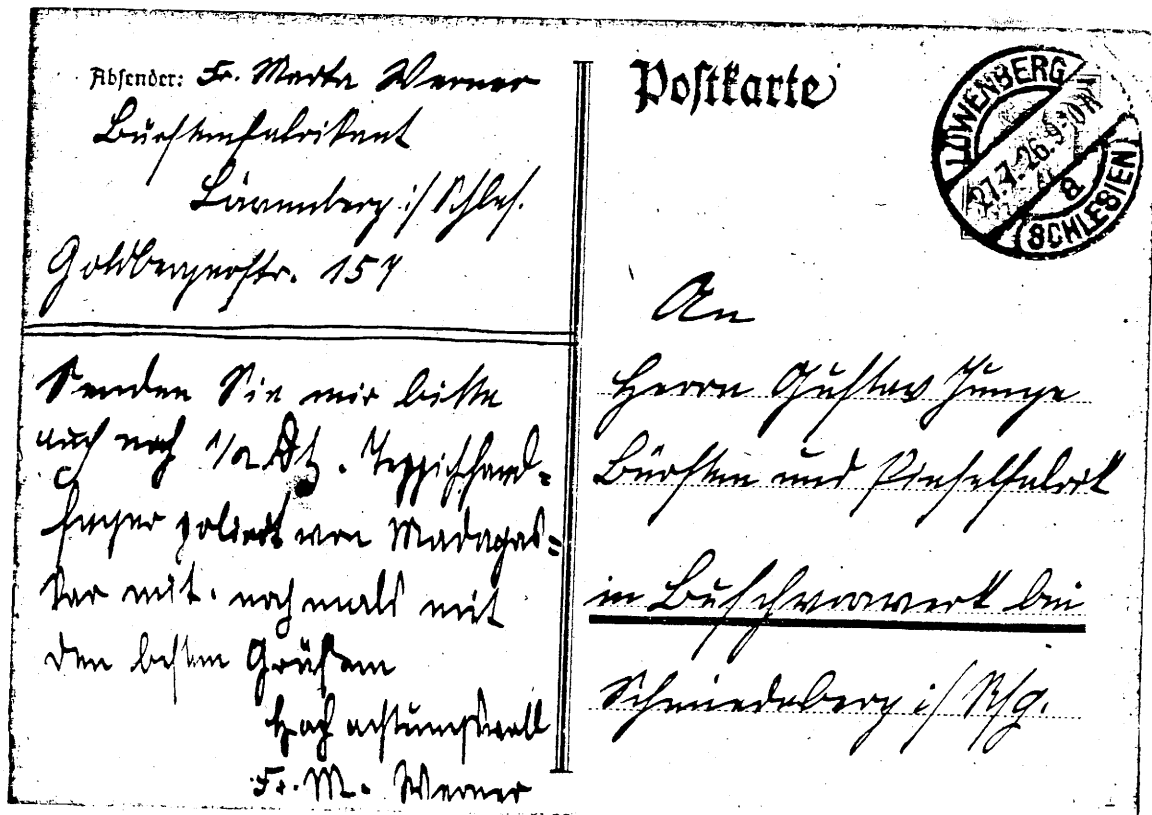 Absender: Fr. Marta Werner
Bürstenfabrikant
Löwenberg i/ Schles.
Goldbergerstr. 157
Senden Sie mir bitte
auch noch 1/2 Dtz. Teppichhand=
feger poliert von Madagas=
kar mit. nochmals mit
den besten Grüßen
Hochachtungsvoll
Fr. M. Werner
Postkarte
LÖWENBERG
27.7.26.9-10 V
a
(SCHLESIEN)
An
Herrn Gustav Junge
Bürsten und Pinselfabrik
in Buschvorwerk bei
Schmiedeberg i/ Rsg.